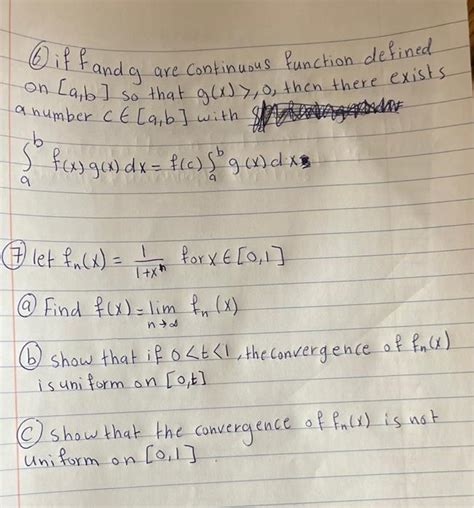 ⑥ if f and g are continuous function defined
on [a,b] so that g(x) ≥, 0, then there exists
a number c ∈ [a,b] with
∫ₐᵇ f(x) g(x) dx = f(c) ∫ₐᵇ g(x) dx
⑦ let fₙ(x) = 1/(1+xⁿ) for x ∈ [0,1]
ⓐ Find f(x) = lim n→∞ fₙ(x)
ⓑ show that if 0<t<1, the convergence of fₙ(x)
is uniform on [0,t]
ⓒ show that the convergence of fₙ(x) is not
uniform on [0,1]